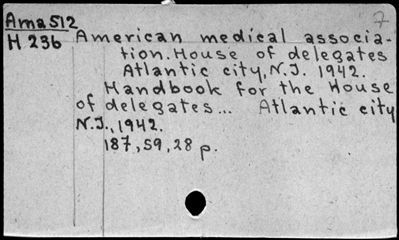 7
Ama512
H 236 American medical associa-
tion. House of delegates
Atlantic city, N.J. 1942.
Handbook for the House
of delegates... Atlantic city
N.J., 1942.
187, 59, 28 p.